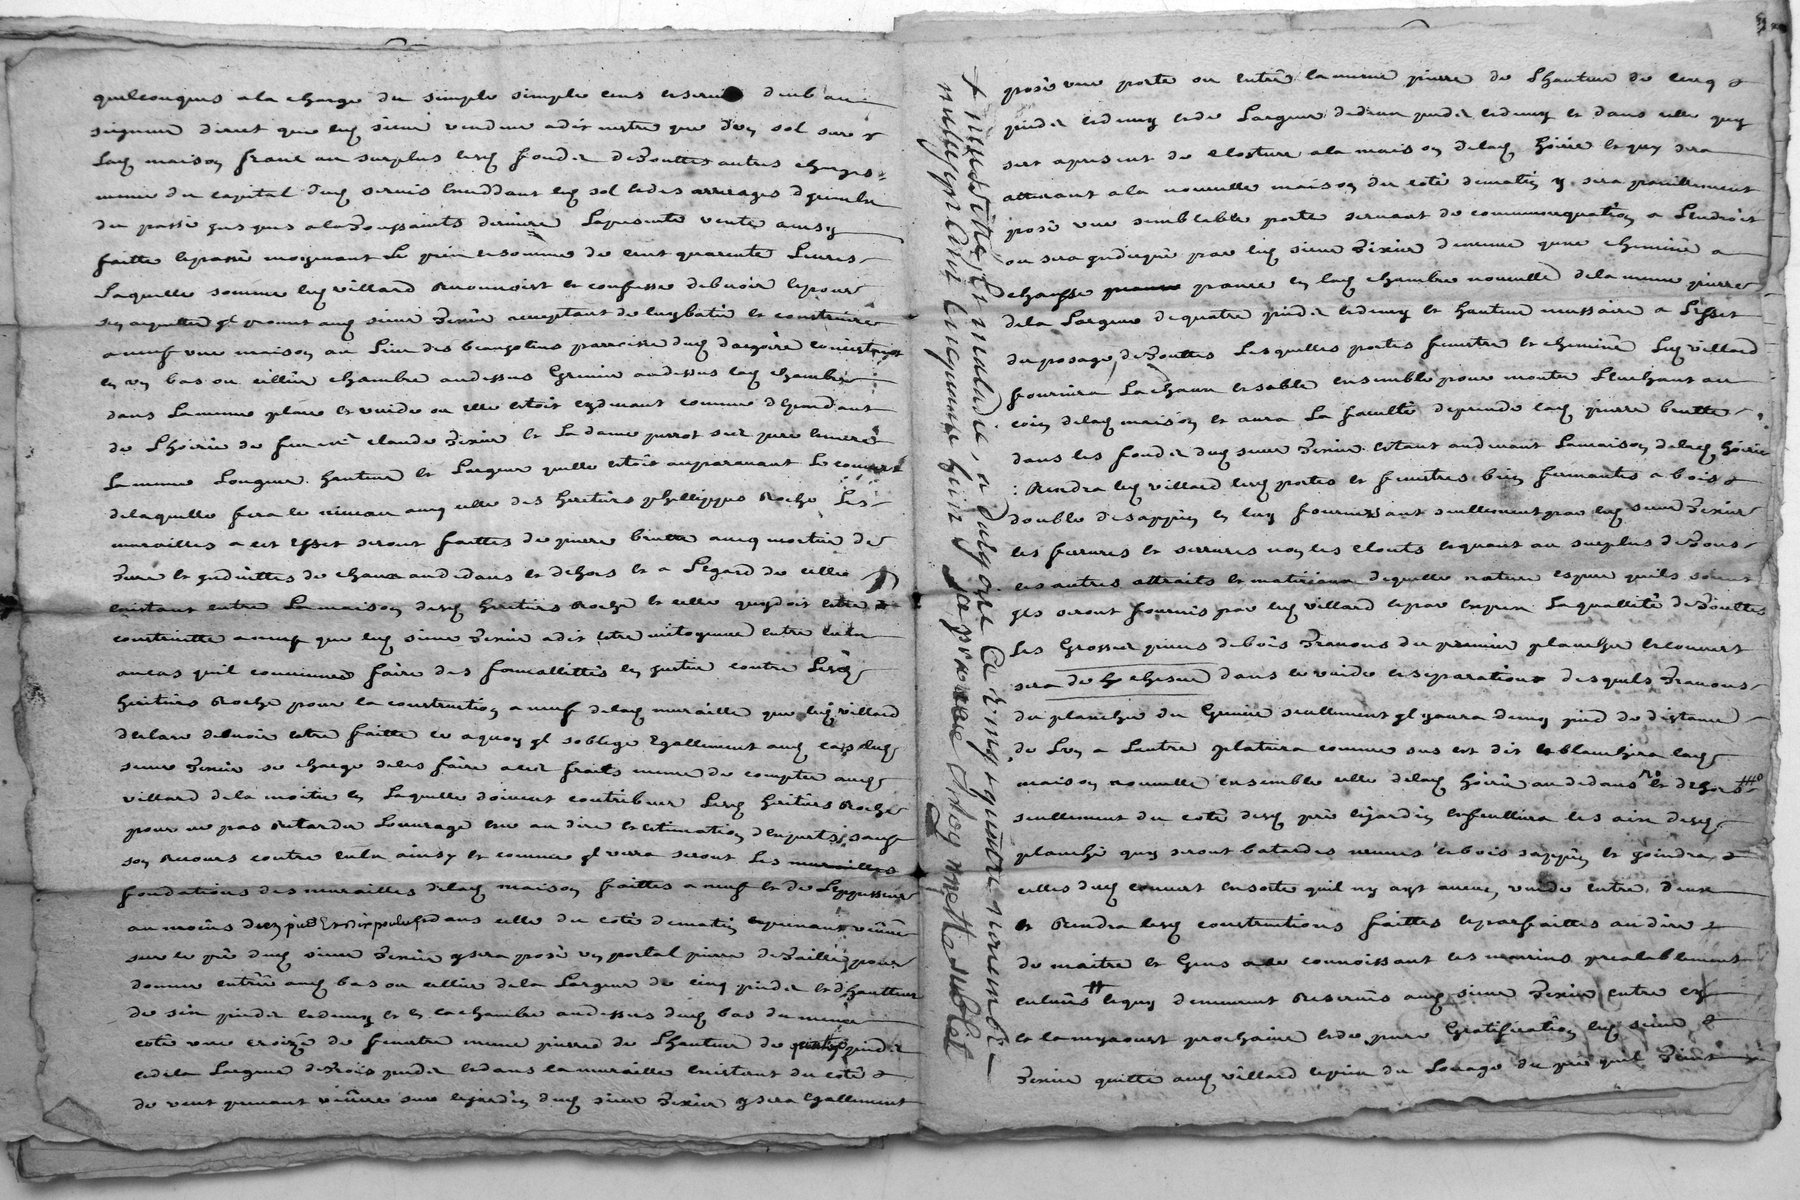 quelconques a la charge du simple simple cens et servis deub au
seigneur direct que led sieur vendeur a dit estre que d'un sol sur
lad maison franc au surplus lesd fonds de touttes autres charges
mesme du capital dud servis luy dd sol et des arrerages d
du passé jusques a la toussaints derniere La presente vente ainsy
faitte et passée moyennant Le prix et somme de cent quarante Livres
Laquelle somme led villard reconnoist et confesse debvoir et pour
s'en aquitter jl promet aud sieur Texier acceptant de luy batir et construire
a neuf une maison au Lieu des parroisse dud d'argoire consistant
en un bas ou cellier chambre au dessus Grenier au dessus lad chambre
dans La mesme place et vuide ou elle estoit cydevant comme dependant
de L'hoirie de feu mr claude Texier et La dame perrot ses pere et mere
La mesme Longueur hauteur et Largeur quelle estoit auparavant Le couvert
de laquelle fera le niveau avec celle des heritiers phelippes Roche Les
murailles a cet effet seront faittes de pierre brutte avec mortier de
terre et enduittes de chaux au dedans et dehors et a L'egard de celle
existant entre La maison desd heritiers Roche et celle quy doit estre
construitte a neuf que led sieur Texier a dit estre mitoyenne entre eux
au cas quil convienne faire des formallittés en justice contre Lesd
heritiers Roche pour la construction a neuf de lad muraille que led villard
declare debvoir estre faitte ce a quoy jl s'oblige Egallement aud cas led
sieur Texier se charge de les faire a ses fraits mesme de compter aud
villard de la moitie en Laquelle doivent contribuer Lesd heritiers Roche
pour ne pas retarder L'ouvrage au dire et estimation d'experts sauf
son recours contre eux ainsy et comme jl verra seront Les murailles
fondations des murailles de lad maison faittes a neuf et de L'eppesseur
au moins dans celle du coté de matin et prenant veüe
sur le pré dud sieur Texier y sera posé un portail pierre de taille pour
donner entrée aud bas ou cellier de la Largeur de cinq pieds et d'hautteur
de six pieds et demy et en la chambre au dessus dud bas du mesme
coté une croizée de fenestre mesme pierre de L'hauteur de pieds
et de la Largeur de trois pieds et dans la muraille existant du coté
de vent prenant veüe sur le jardin dud sieur Texier y sera Egallement
+ nécessité, en maladie, a dargoire ce cinquiême novembre
mille sept cent cinquante huit La presence
posé une porte ou entrée la mesme pierre de L'hauteur de cinq
pieds et demy et de Largeur de deux pieds et demy et dans celle quy
sert a present de closture a la maison de lad hoirie et quy sera
attenant a la nouvelle maison du coté de matin y sera pareillement
posé une semblable porte servant de communiquation a L'endroit
ou sera jndiqué par led sieur Texier de mesme qu'une cheminée a
chauffe pance en lad chambre nouvelle de la mesme pierre
de la Largeur de quatre pieds et demy et hauteur necessaire a L'effet
du posage de touttes Lesquelles portes fenestre et cheminée Led villard
fournira La chaux et sable ensemble pour monter au
coin de lad maison et aura La faculté de prendre lad pierre brutte
dans les fonds dud sieur Texier estant au devant La maison de lad hoirie
Rendra led villard lesd portes et fenestres bien fermantes a bois
double de sappin en luy fournissant seullement par led sieur Texier
les ferrures et serrures non les clouts et quant au surplus de tous
les autres attraits et matériaux de quelle nature et espece quils soient
jls seront fournis par led villard La quallité de touttes
Les Grosses pieces de bois Travons du premier plancher et couvert
sera de chesne dans le vuide et separation desquels Travons
du plancher du Grenier seullement jl y aura demy pied de distance
de L'un a L'autre platrira comme sus est dit et blanchira lad
maison nouvelle ensemble celle de lad hoirie au dedans et dehors
seullement du coté desd pré et jardin et feullira les aix desd
planché quy seront batardes bois sappin et joindra
celles dud couvert en sorte quil ny ayt aucun vuide entre deux
et Rendra lesd constructions faittes et parfaittes au dire
de maitre et Gens a ce connoissant les prealablement
enlevés lequy demeurent reservés aud sieur Texier entre cy
et la my aoust prochaine et de pure Gratification led sieur
Texier quitte aud villard le prix du Louage du pré quil tient